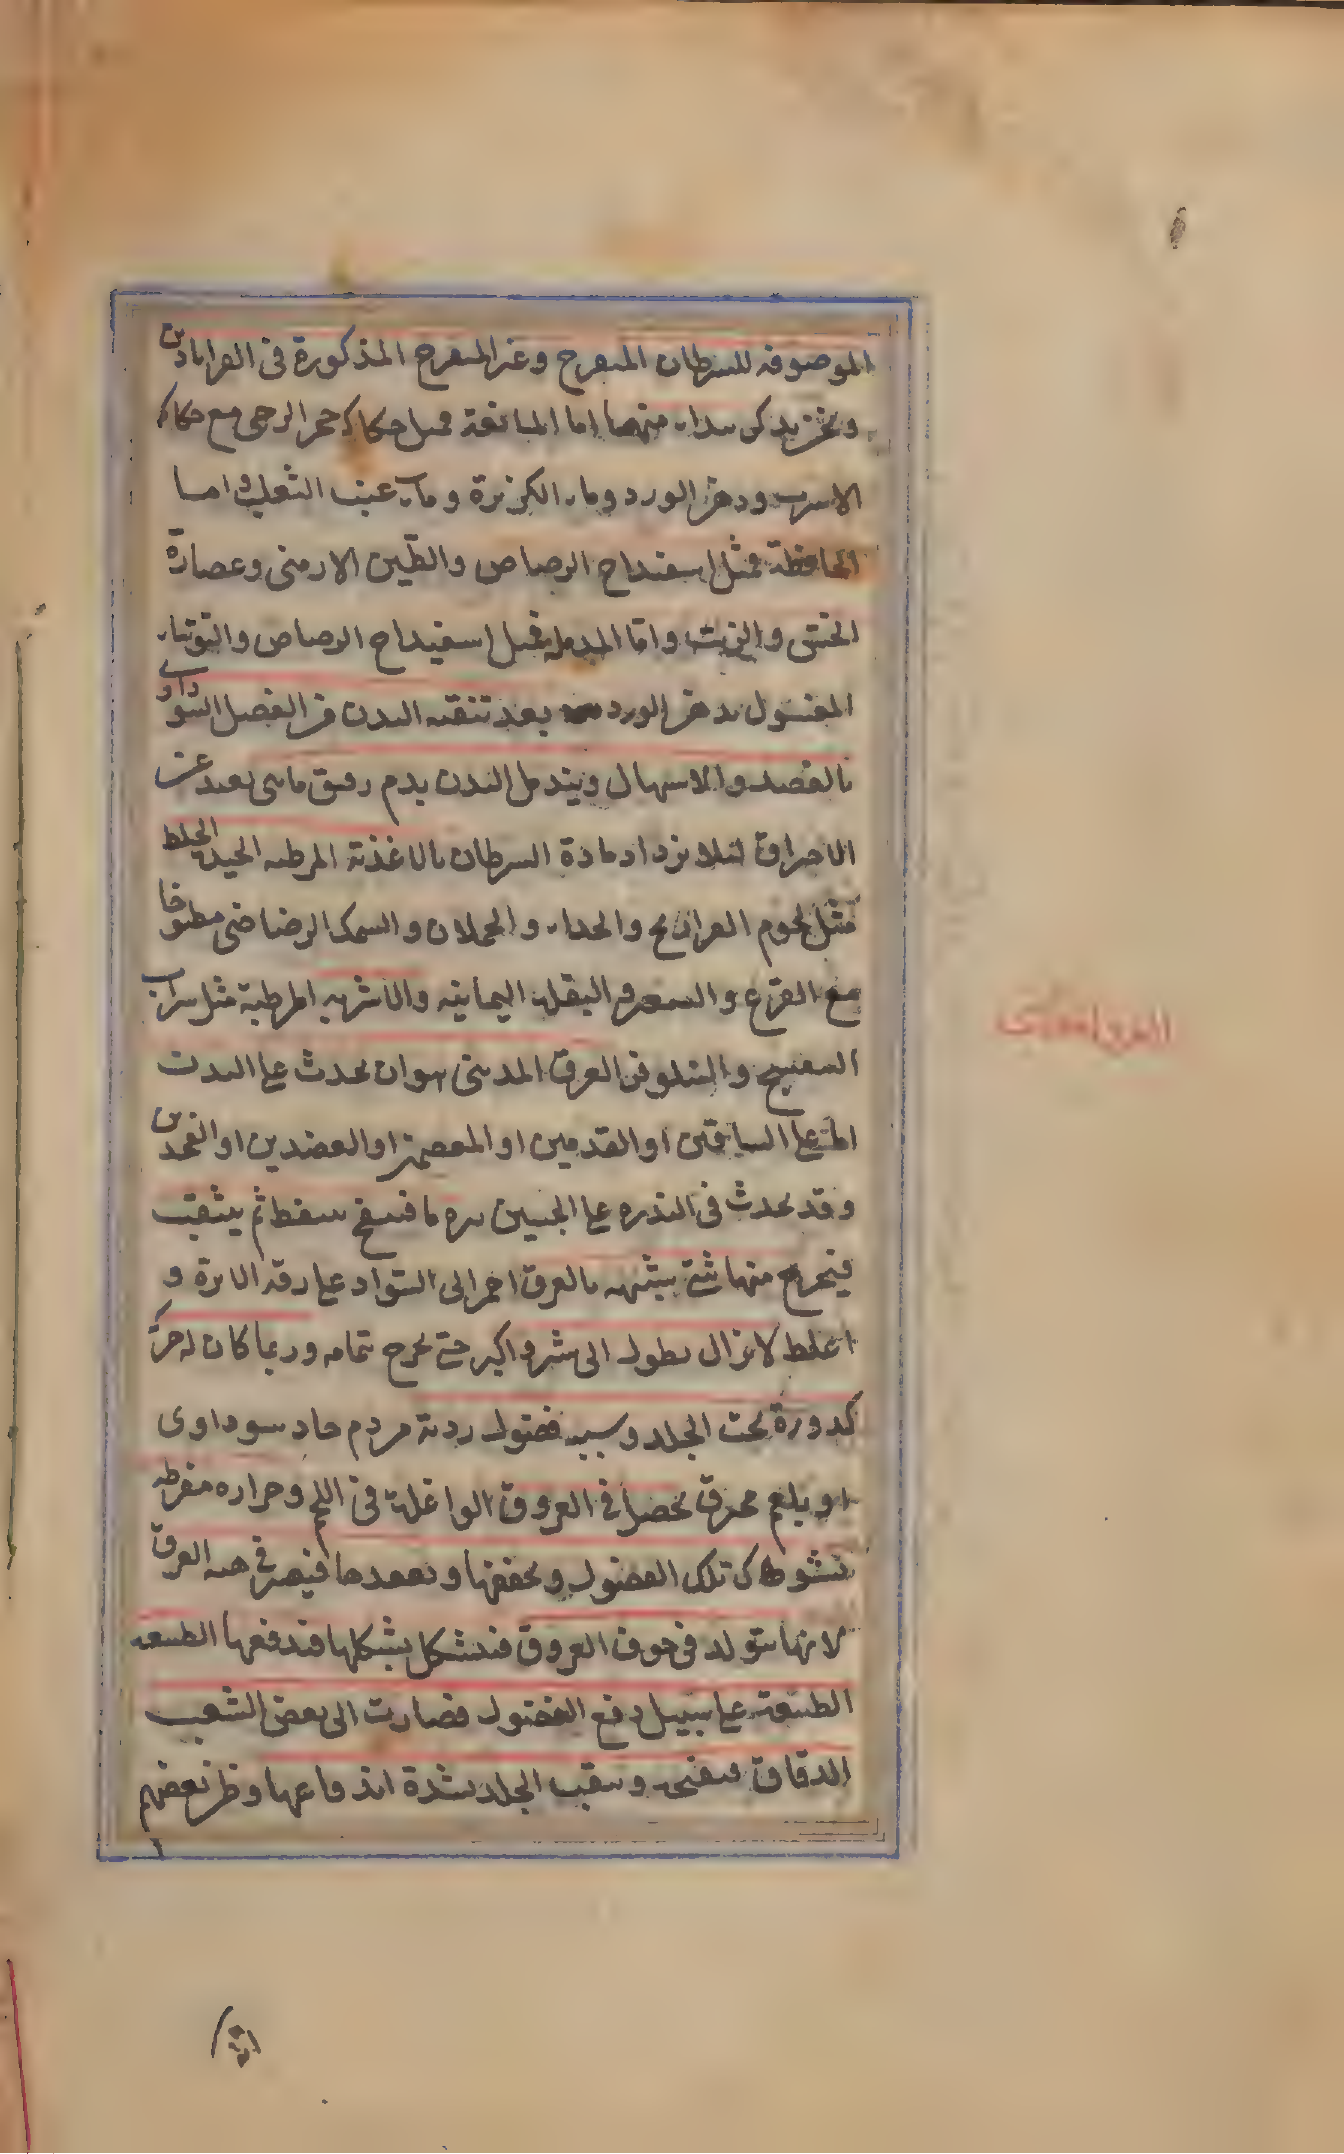 الموصوفه للسرطان المتقرح وغير المتقرح المذكورة فى القراباد ين
ونحن نذكر نبذا منها اما المانعة فمثل حكاكة حجر الرحى مع حكاكة
الاسرب ودهن الورد وماء الكزبرة وماء عنب الثعلب واما
الحافظة فمثل اسفيداج الرصاص والطين الارمنى وعصارة
الخس والزيت واما المدمله فمثل اسفيداج الرصاص والتوتياء
المغسول بدهن الورد بعد تنقيه البدن من الفضل السوداوى
بالفصد والاسهال ويتدمل البدن بدم رقيق مائى بعيد عن
الاحراق لئلا يزداد مادة السرطان بالاغذية المرطبه الجيدة الخلط
مثل لحوم الفراريج والجداء والحملان والسمك الرضراضى مطبوخا
مع القرع والبقلة اليمانيه والاشربه المرطبة مثل شراب
البنفسج والنيلوفر العرق المدينى هوان يحدث على البدن
اما على الساقين او القدمين او المعصمين او العضدين او الفخذين
وقد يحدث فى الندره على الجنبين بثره ما فينتفخ ينتفط ثم يتثقب
فيخرج منها شئ يشبه بالعرق احمر الى السواد على رقه الابرة و
اغلظ لا يزال يطول الى شبر واكبر حتى يخرج بتمامه وربما كان له حركة
كدورة تحت الجلد وسببه فضول ردية من دم حاد سوداوى
او بلغم محرق يحصل فى العروق الواغلة فى اللحم وحراره مفرطه
تشوط تلك الفضول ويجففها ويعقدها فيصير فى هيه العرق
لانها يتولد فى جوف العروق فيتشكل بشكلها فتدفعها الطبيعه
الطبيعة على سبيل دفع الفضول فصارت الى بعض الشعب
الدقاق ويثقب الجلد بشدة اندفاعها وظن بعضهم